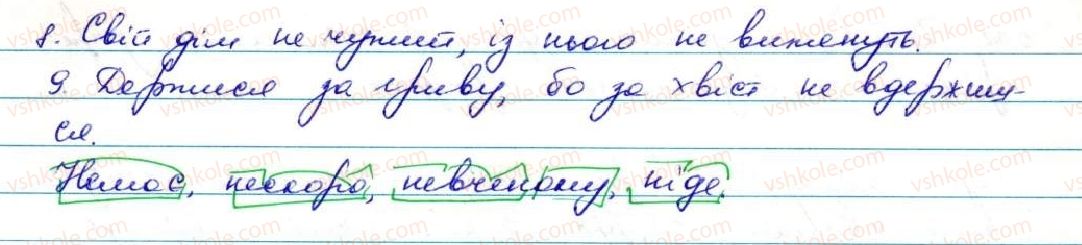 8. Свій дім не чужий, із нього не виженуть.
9. Держися за гриву, бо за хвіст не вдержиш-
ся.
Немає, нескоро, невченому, ніде.